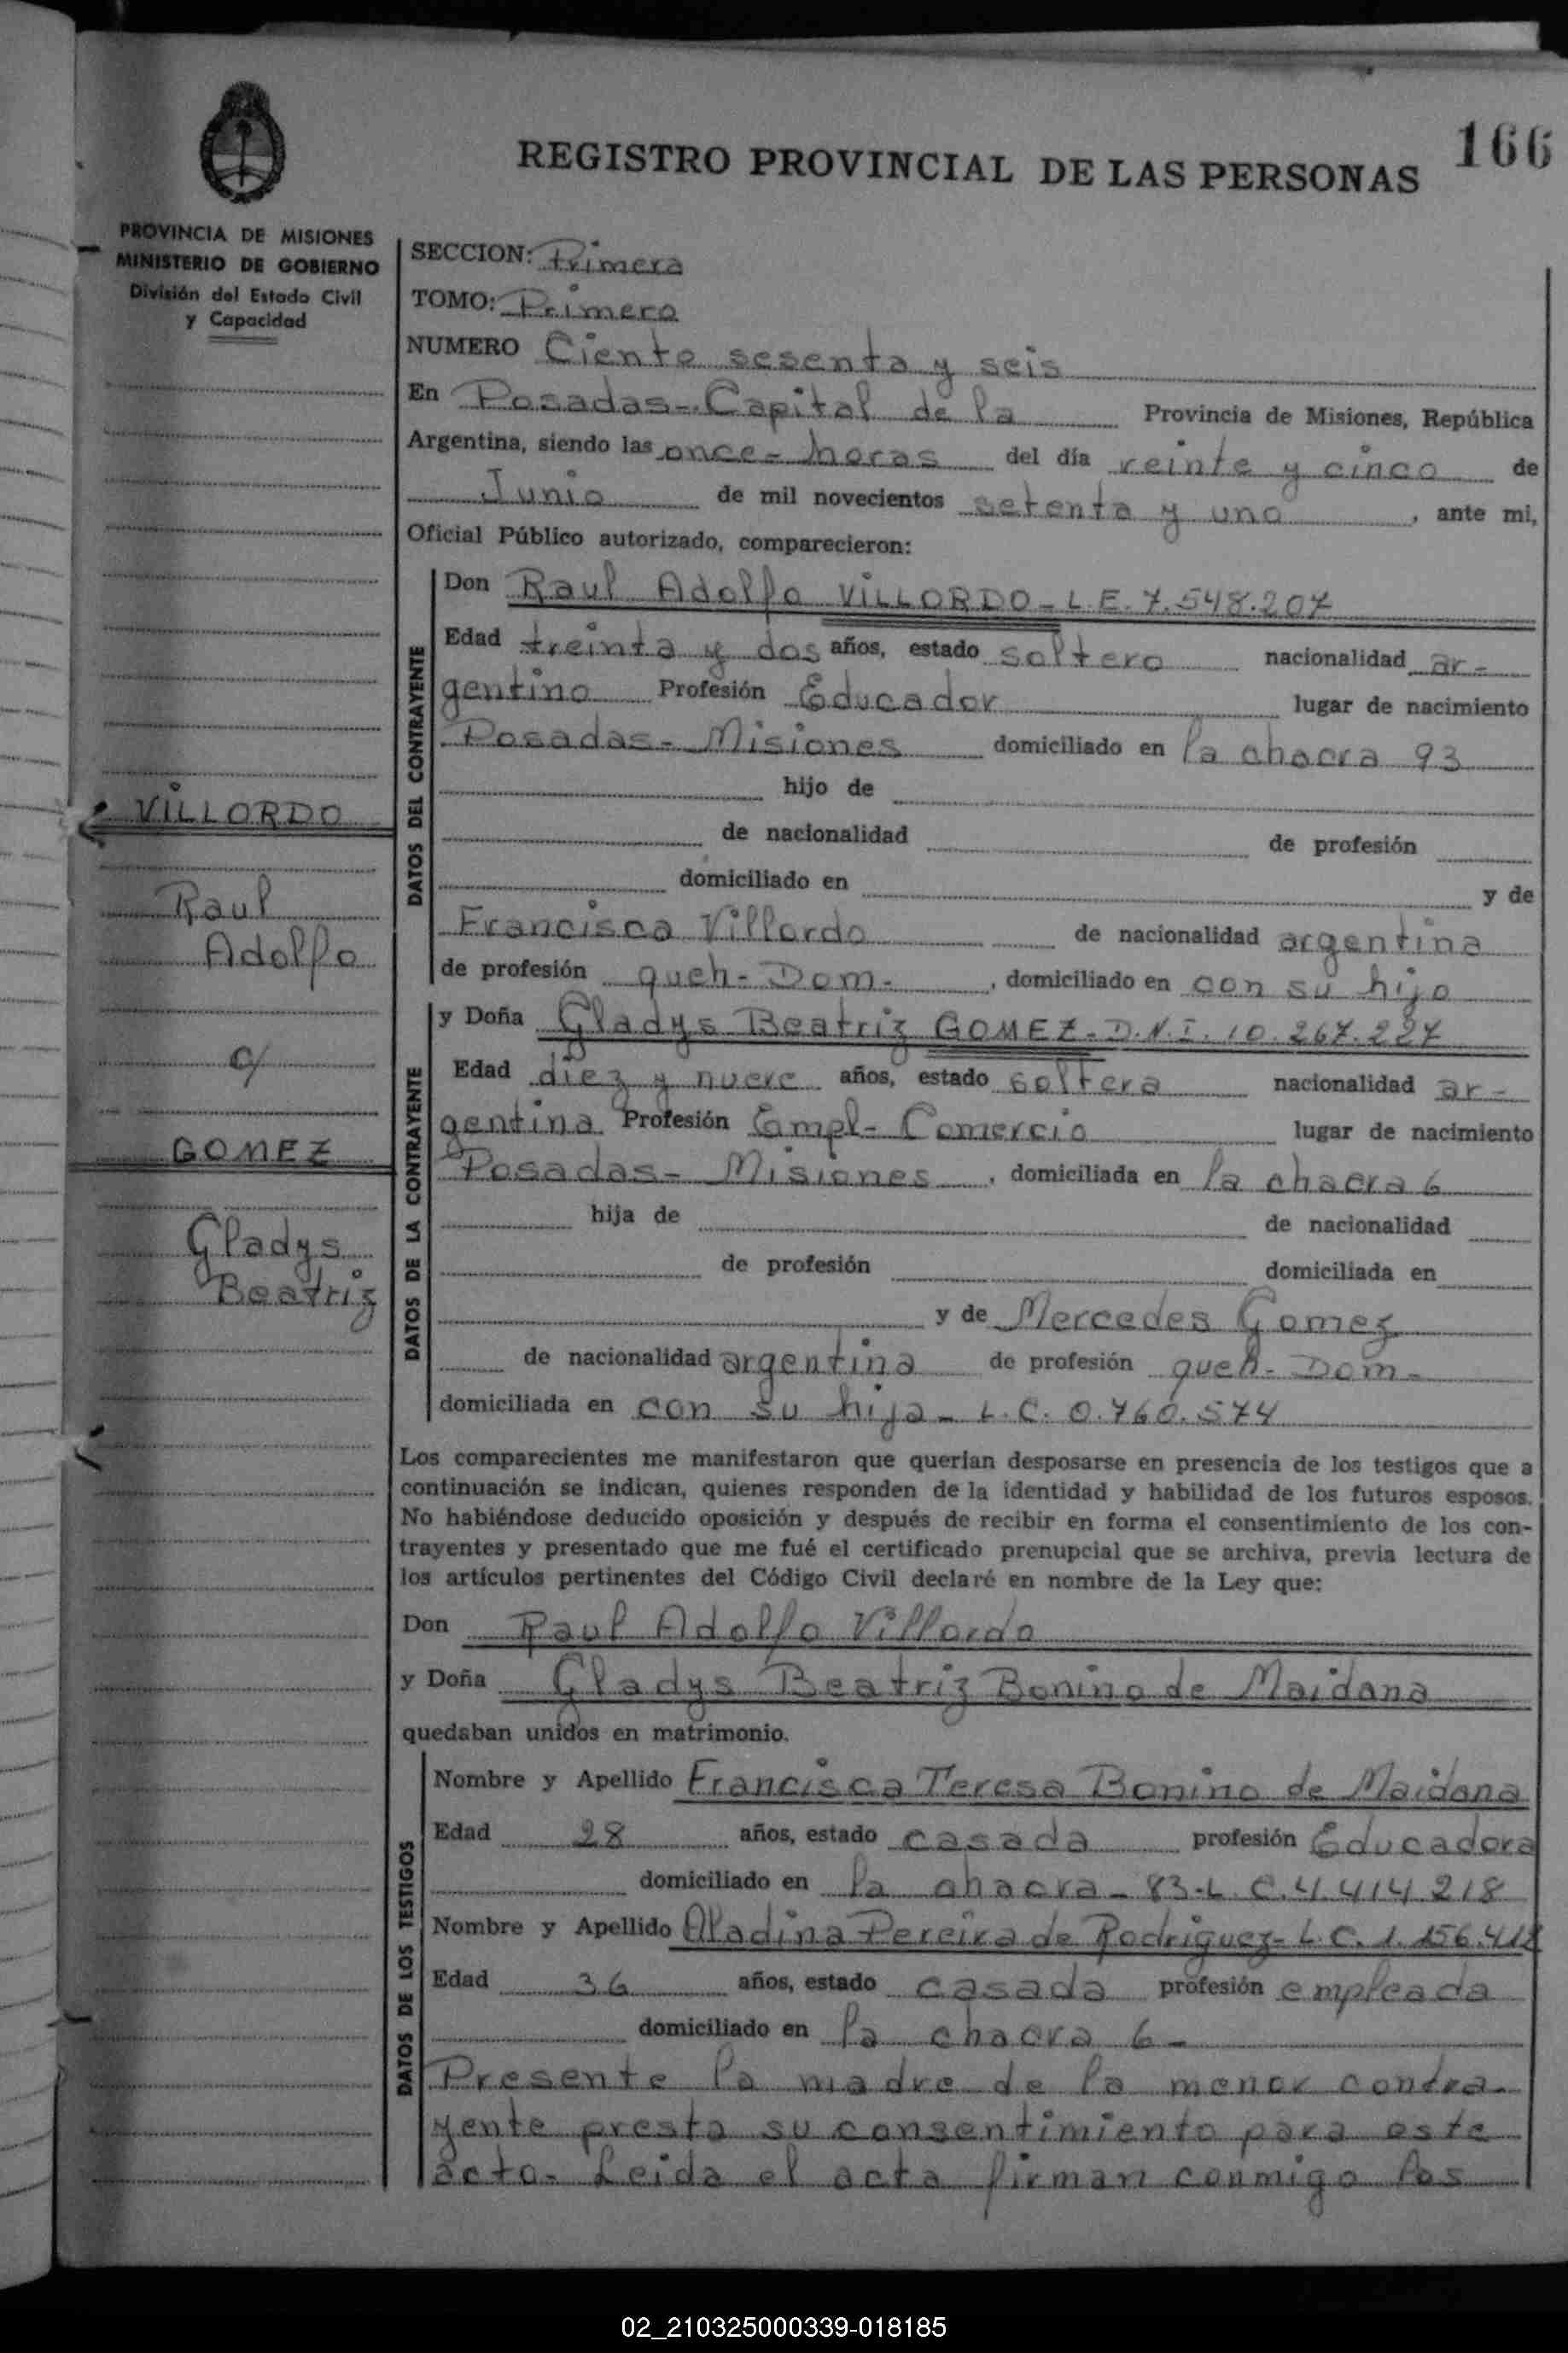 REGISTRO PROVINCIAL DE LAS PERSONAS
166
PROVINCIA DE MISIONES
MINISTERIO DE GOBIERNO
División del Estado Civil
y Capacidad
VILLORDO
Raul
Adolfo
c/
GOMEZ
Gladys
Beatriz
SECCION: Primera
TOMO: Primero
NUMERO Ciento sesenta y seis
En Posadas-Capital de la Provincia de Misiones, República
Argentina, siendo las once-horas del día veinte y cinco de
Junio de mil novecientos setenta y uno, ante mi,
Oficial Público autorizado, comparecieron:
DATOS DEL CONTRAYENTE
Don Raul Adolfo VILLORDO-L.E.7.548.207
Edad treinta y dos años, estado soltero nacionalidad ar-
gentino Profesión Educador lugar de nacimiento
Posadas-Misiones domiciliado en la chacra 93
hijo de
de nacionalidad de profesión
domiciliado en y de
Francisca Villordo de nacionalidad argentina
de profesión queh-Dom-, domiciliado en con su hijo
DATOS DE LA CONTRAYENTE
y Doña Gladys Beatriz GOMEZ-D.N.I.10.267.227
Edad diez y nueve años, estado soltera nacionalidad ar-
gentina Profesión Empl-Comercio lugar de nacimiento
Posadas-Misiones, domiciliada en la chacra 6
hija de de nacionalidad
de profesión domiciliada en
y de Mercedes Gomez
de nacionalidad argentina de profesión queh-Dom-
domiciliada en con su hija-L.C.0.760.574
Los comparecientes me manifestaron que querían desposarse en presencia de los testigos que a
continuación se indican, quienes responden de la identidad y habilidad de los futuros esposos.
No habiéndose deducido oposición y después de recibir en forma el consentimiento de los con-
trayentes y presentado que me fué el certificado prenupcial que se archiva, previa lectura de
los artículos pertinentes del Código Civil declaré en nombre de la Ley que:
Don Raul Adolfo Villordo
y Doña Gladys Beatriz Bonino de Maidana
quedaban unidos en matrimonio.
DATOS DE LOS TESTIGOS
Nombre y Apellido Francisca Teresa Bonino de Maidana
Edad 28 años, estado casada profesión Educadora
domiciliado en la chacra-83-L.C.4.414.218
Nombre y Apellido Aladina Pereira de Rodriguez-L.C.1.156.418
Edad 36 años, estado casada profesión empleada
domiciliado en la chacra 6-
Presente la madre de la menor contra-
yente presta su consentimiento para este
acto-Leida el acta firman conmigo los
02_210325000339-018185